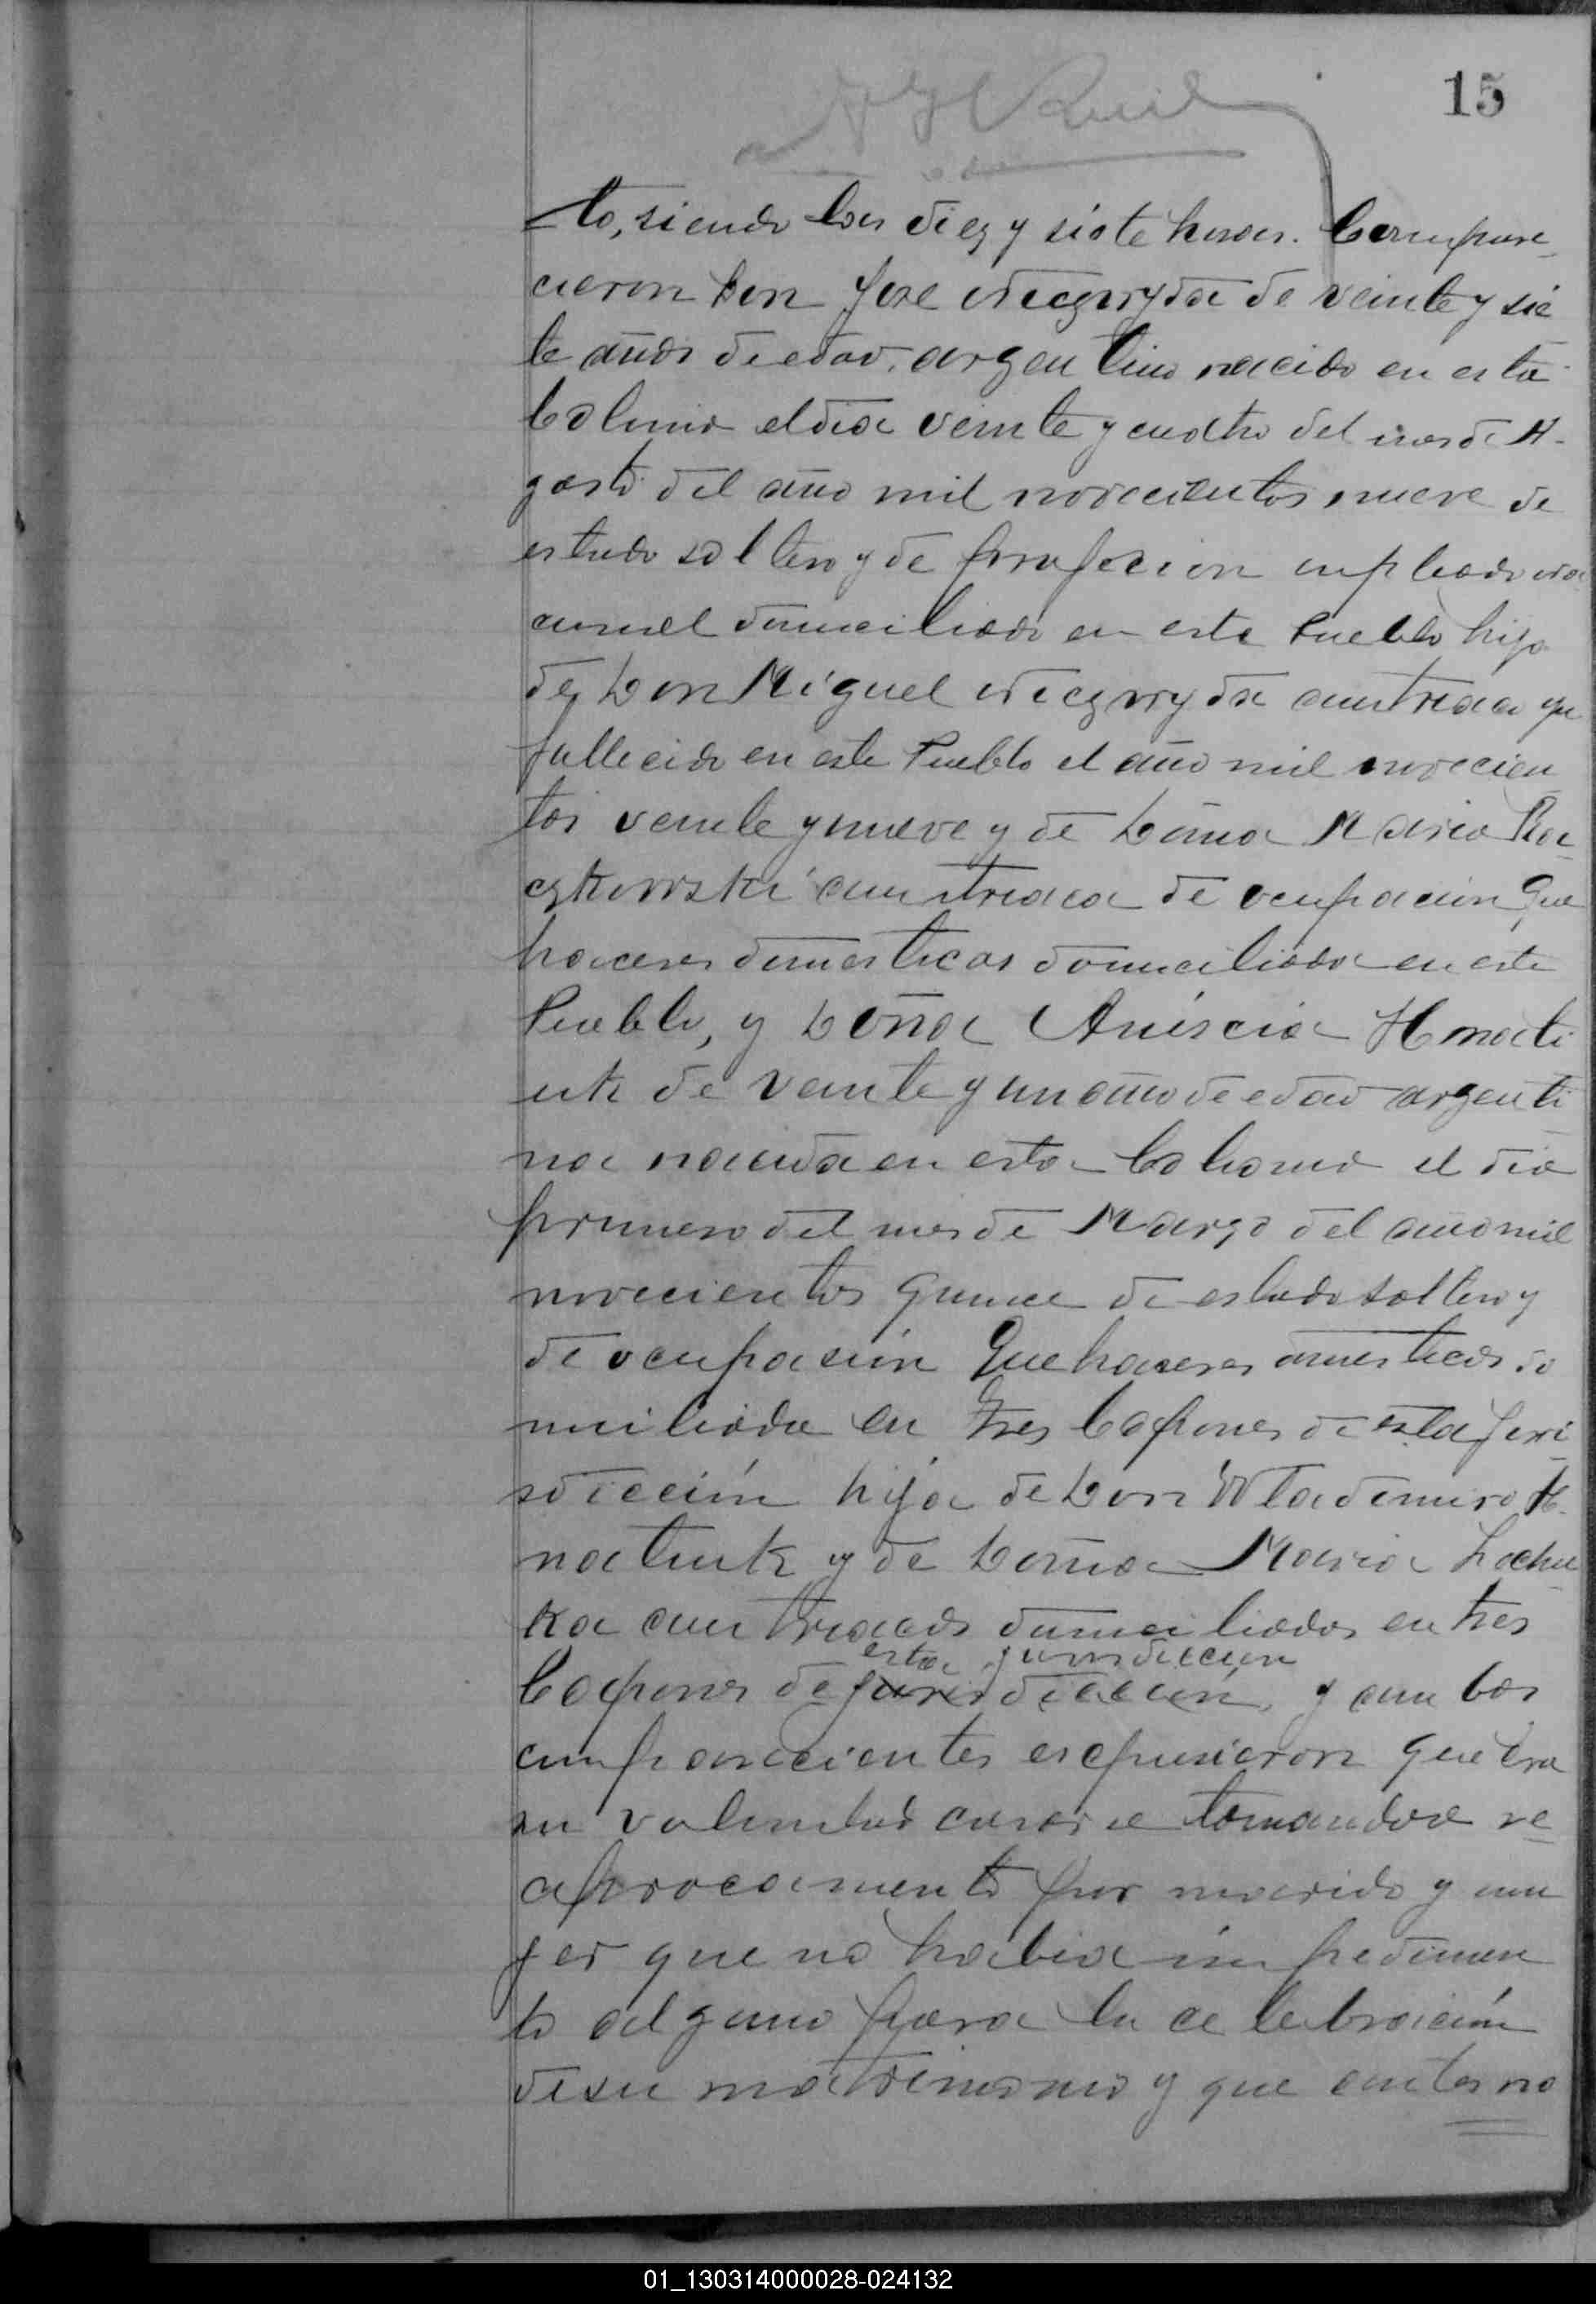 15
to, siendo las diez y siete horas. Compare-
cieron Don José de veinte y sie
te años de edad, argentino nacido en esta
Colonia el dia veinte y cuatro del mes de A-
gosto del año mil novecientos nueve de
estado soltero y de profecion empleado na
cional domiciliado en este Pueblo hijo
de Don Miguel austriaco
fallecido en este Pueblo el año mil novecien
tos veinte y nueve y de Doña Maria Ra-
czkowski austriaca de ocupacion Que
haceres domesticos domiciliada en este
Pueblo, y Doña Aniscia Hnati
uk de veinte y un año de edad argenti
na nacida en esta Colonia el dia
primero del mes de Marzo del año mil
novecientos quince de estado soltero y
de ocupasión Quehaseres omesticos do
miciliada en Tres Capones de esta juri
sdicción hija de Don Wladimiro H-
natiuk y de Doña Maria
ka austriacos domiciliados en tres
esta jurisdiccion
Capones de jurisdiccion, y ambos
comparecientes expusieron que era
su voluntad casarse tomandose re-
ciprocamente por marido y mu
jer que no habia impedimen
to alguno para la celebración
de su matrimonio y que antes no
01_130314000028-024132